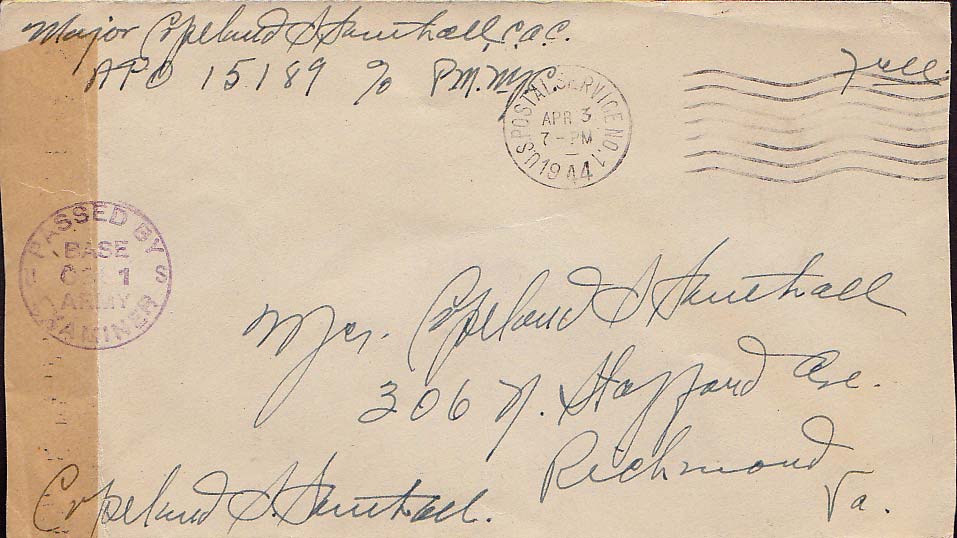 Major Copeland S Southall, C.A.C.
APO 15189 c/o P.M. NYC.
Free
U.S. POSTAL SERVICE NO. 1
APR 3
7 - PM
1944
PASSED BY
BASE
1
U S
ARMY
EXAMINER
Mrs. Copeland S Southall
306 N. Stafford Ave.
Richmond
Va.
Copeland S. Southall.